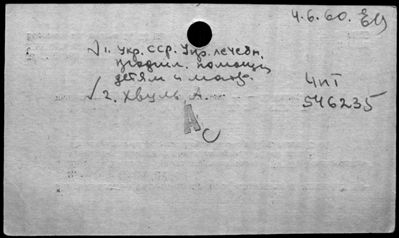 4.6.60.
√ 1. Укр. ССР. Упр. лечебн.
помощи
детям и мат.
√ 2. Хвуль, А.
Ас
Чит
546235